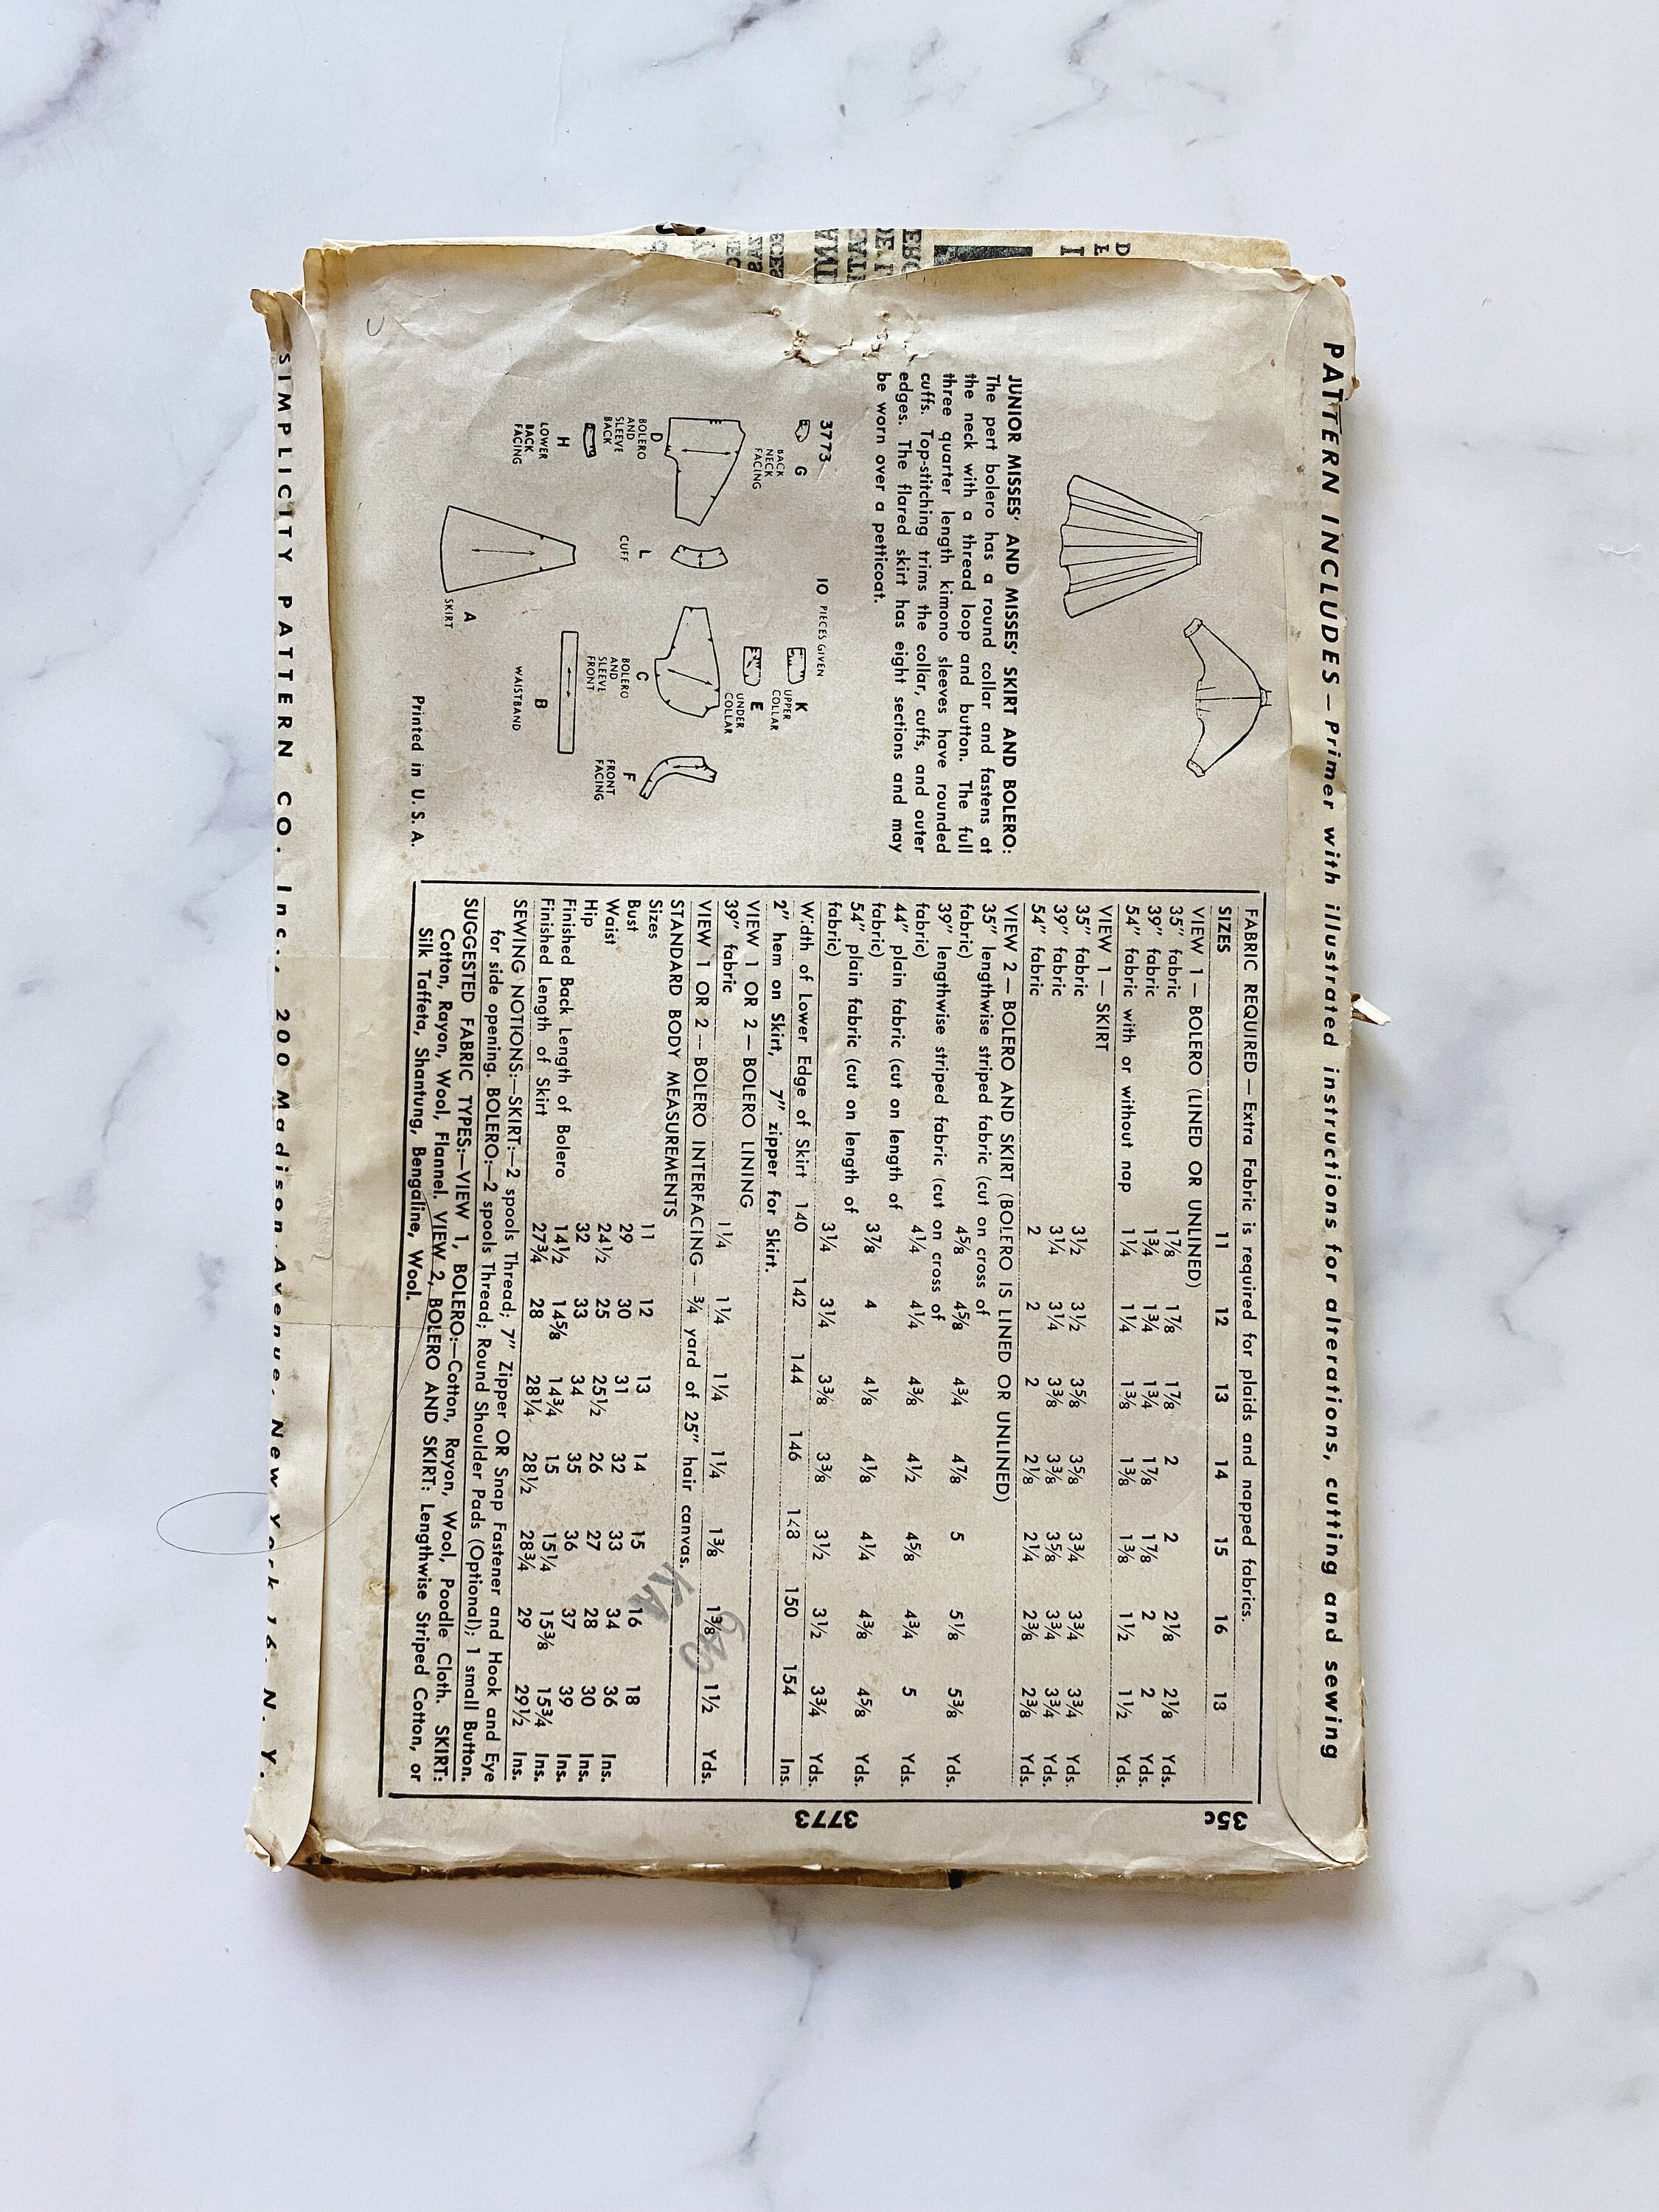 PATTERN INCLUDES—Primer with illustrated instructions for alterations, cutting and sewing
JUNIOR MISSES' AND MISSES' SKIRT AND BOLERO:
The pert bolero has a round collar and fastens at
the neck with a thread loop and button. The full
three quarter length kimono sleeves have rounded
cuffs. Top-stitching trims the collar, cuffs, and outer
edges. The flared skirt has eight sections and may
be worn over a petticoat.
3773
10 PIECES GIVEN
G
BACK
NECK
FACING
K
UPPER
COLLAR
E
UNDER
COLLAR
D
BOLERO
AND
SLEEVE
BACK
L
CUFF
C
BOLERO
AND
SLEEVE
FRONT
F
FRONT
FACING
H
LOWER
BACK
FACING
A
SKIRT
B
WAISTBAND
Printed in U. S. A.
FABRIC REQUIRED — Extra Fabric is required for plaids and napped fabrics.
SIZES 11 12 13 14 15 16 18
VIEW 1 — BOLERO (LINED OR UNLINED)
35″ fabric 1⅞ 1⅞ 1⅞ 2 2 2⅛ 2⅛ Yds.
39″ fabric 1¾ 1¾ 1¾ 1⅞ 1⅞ 2 2 Yds.
54″ fabric with or without nap 1¼ 1¼ 1⅜ 1⅜ 1⅜ 1½ 1½ Yds.
VIEW 1 — SKIRT
35″ fabric 3½ 3½ 3⅝ 3⅝ 3¾ 3¾ 3¾ Yds.
39″ fabric 3¼ 3¼ 3⅜ 3⅜ 3⅝ 3¾ 3¾ Yds.
54″ fabric 2 2 2 2⅛ 2¼ 2⅜ 2⅜ Yds.
VIEW 2 — BOLERO AND SKIRT (BOLERO IS LINED OR UNLINED)
35″ lengthwise striped fabric (cut on cross of
fabric) 4⅝ 4⅝ 4¾ 4⅞ 5 5⅛ 5⅜ Yds.
39″ lengthwise striped fabric (cut on cross of
fabric) 4¼ 4¼ 4⅜ 4½ 4⅝ 4¾ 5 Yds.
44″ plain fabric (cut on length of
fabric) 3⅞ 4 4⅛ 4⅛ 4¼ 4⅜ 4⅝ Yds.
54″ plain fabric (cut on length of
fabric) 3¼ 3¼ 3⅜ 3⅜ 3½ 3½ 3¾ Yds.
Width of Lower Edge of Skirt 140 142 144 146 148 150 154 Ins.
2″ hem on Skirt, 7″ zipper for Skirt.
VIEW 1 OR 2 — BOLERO LINING
39″ fabric 1¼ 1¼ 1¼ 1¼ 1⅜ 1⅜ 1½ Yds.
VIEW 1 OR 2 — BOLERO INTERFACING — ¾ yard of 25″ hair canvas.
STANDARD BODY MEASUREMENTS
Sizes 11 12 13 14 15 16 18
Bust 29 30 31 32 33 34 36 Ins.
Waist 24½ 25 25½ 26 27 28 30 Ins.
Hip 32 33 34 35 36 37 39 Ins.
Finished Back Length of Bolero 14½ 14⅝ 14¾ 15 15¼ 15⅜ 15¾ Ins.
Finished Length of Skirt 27¾ 28 28¼ 28½ 28¾ 29 29½ Ins.
SEWING NOTIONS:—SKIRT:—2 spools Thread; 7″ Zipper OR Snap Fastener and Hook and Eye
for side opening. BOLERO:—2 spools Thread; Round Shoulder Pads (Optional); 1 small Button.
SUGGESTED FABRIC TYPES:—VIEW 1, BOLERO:—Cotton, Rayon, Wool, Poodle Cloth. SKIRT:
Cotton, Rayon, Wool, Flannel. VIEW 2, BOLERO AND SKIRT: Lengthwise Striped Cotton, or
Silk Taffeta, Shantung, Bengaline, Wool.
35c
3773
SIMPLICITY PATTERN CO. Inc., 200 Madison Avenue, New York 16, N. Y.